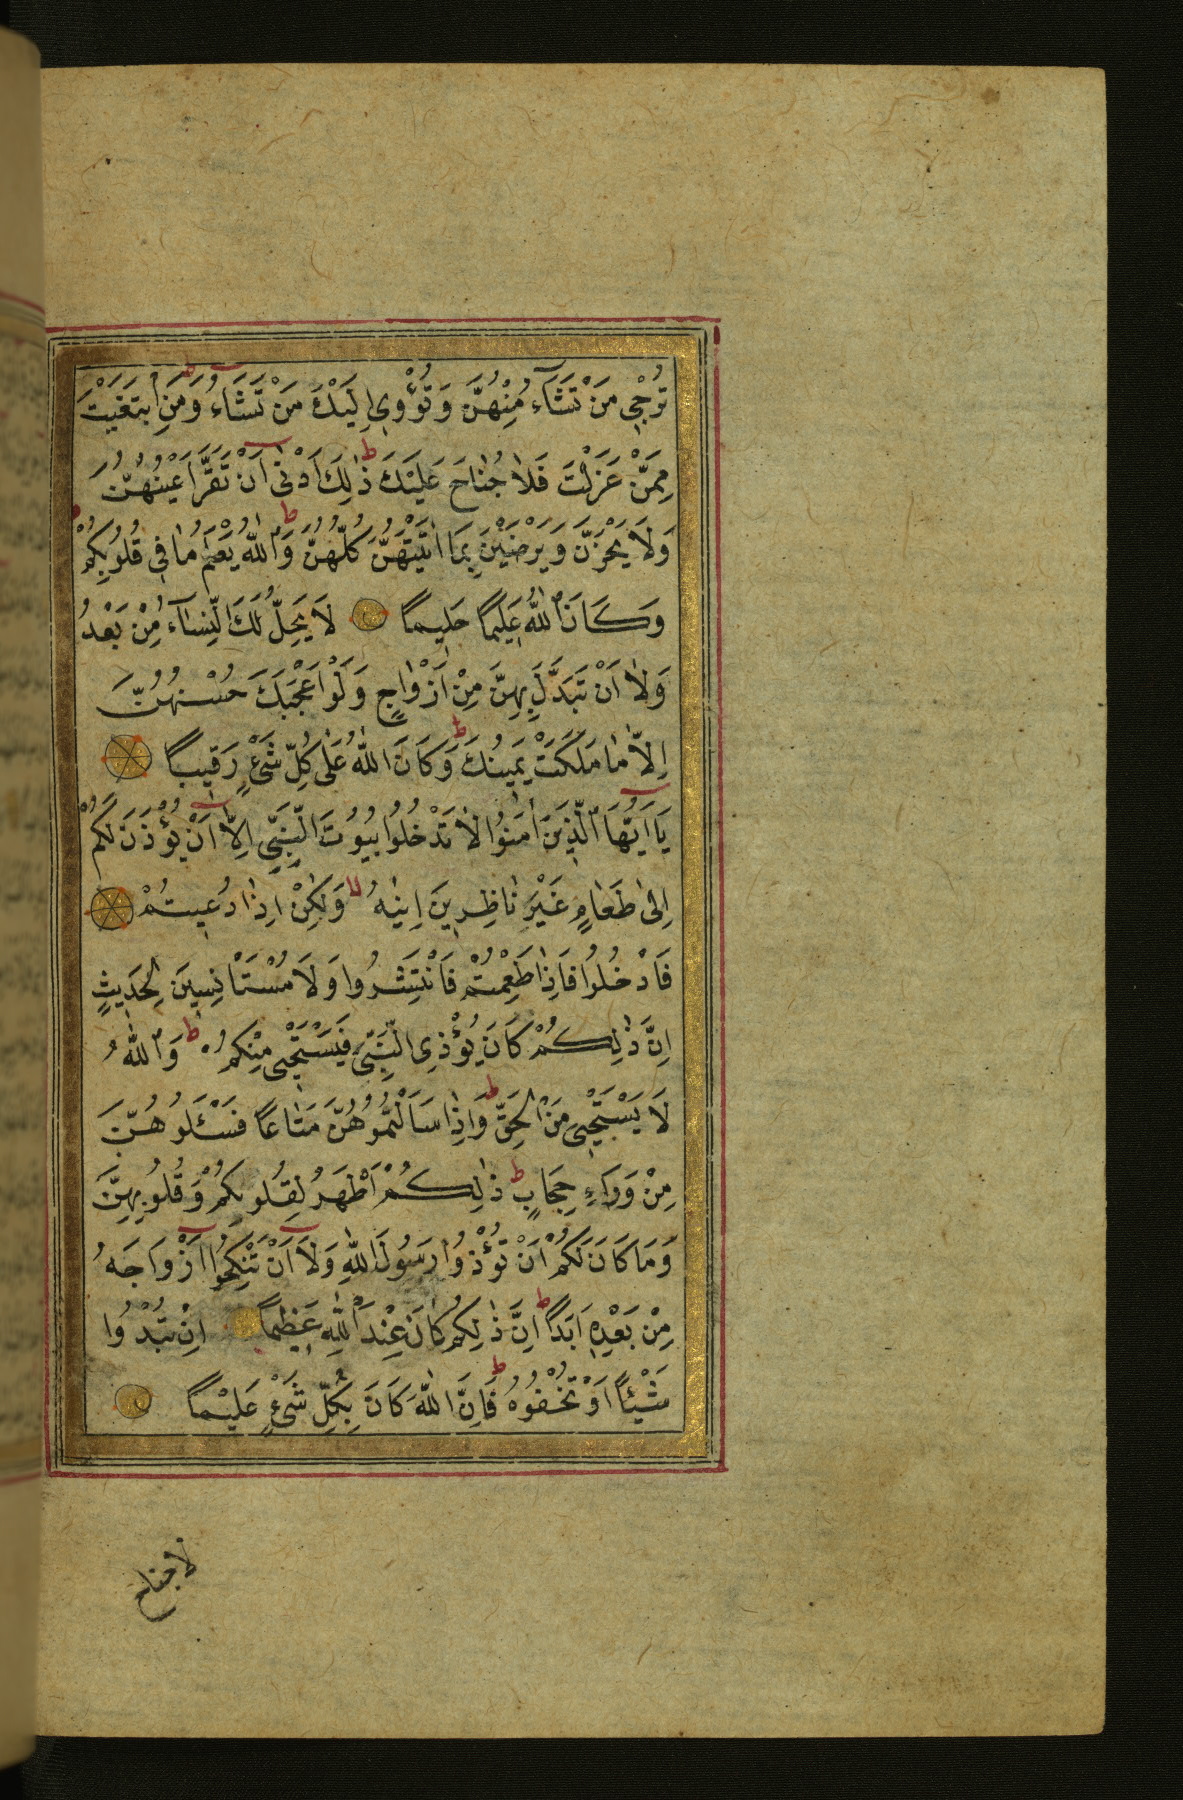 تُرْجِي مَنْ تَشَآءُ مِنْهُنَّ وَتُؤْوِي اِلَيْكَ مَنْ تَشَآءُ وَمَنِ ابْتَغَيْتَ
مِمَّنْ عَزَلْتَ فَلَا جُنَاحَ عَلَيْكَ ذٰلِكَ اَدْنٰى اَنْ تَقَرَّ اَعْيُنُهُنَّ
وَلَا يَحْزَنَّ وَيَرْضَيْنَ بِمَا اٰتَيْتَهُنَّ كُلُّهُنَّ وَاللّٰهُ يَعْلَمُ مَا فِي قُلُوبِكُمْ
وَكَانَ اللّٰهُ عَلِيمًا حَلِيمًا لَا يَحِلُّ لَكَ النِّسَآءُ مِنْ بَعْدُ
وَلَا اَنْ تَبَدَّلَ بِهِنَّ مِنْ اَزْوَاجٍ وَلَوْ اَعْجَبَكَ حُسْنُهُنَّ
اِلَّا مَا مَلَكَتْ يَمِينُكَ وَكَانَ اللّٰهُ عَلٰى كُلِّ شَيْءٍ رَقِيبًا
يَا اَيُّهَا الَّذِينَ اٰمَنُوا لَا تَدْخُلُوا بُيُوتَ النَّبِيِّ اِلَّا اَنْ يُؤْذَنَ لَكُمْ
اِلٰى طَعَامٍ غَيْرَ نَاظِرِينَ اِنٰيهُ وَلٰكِنْ اِذَا دُعِيتُمْ
فَادْخُلُوا فَاِذَا طَعِمْتُمْ فَانْتَشِرُوا وَلَا مُسْتَاْنِسِينَ لِحَدِيثٍ
اِنَّ ذٰلِكُمْ كَانَ يُؤْذِي النَّبِيَّ فَيَسْتَحْيِي مِنْكُمْ وَاللّٰهُ
لَا يَسْتَحْيِي مِنَ الْحَقِّ وَاِذَا سَاَلْتُمُوهُنَّ مَتَاعًا فَسْئَلُوهُنَّ
مِنْ وَرَآءِ حِجَابٍ ذٰلِكُمْ اَطْهَرُ لِقُلُوبِكُمْ وَقُلُوبِهِنَّ
وَمَا كَانَ لَكُمْ اَنْ تُؤْذُوا رَسُولَ اللّٰهِ وَلَا اَنْ تَنْكِحُوا اَزْوَاجَهُ
مِنْ بَعْدِهِ اَبَدًا اِنَّ ذٰلِكُمْ كَانَ عِنْدَ اللّٰهِ عَظِيمًا اِنْ تُبْدُوا
شَيْئًا اَوْ تُخْفُوهُ فَاِنَّ اللّٰهَ كَانَ بِكُلِّ شَيْءٍ عَلِيْمًا
لا جناح